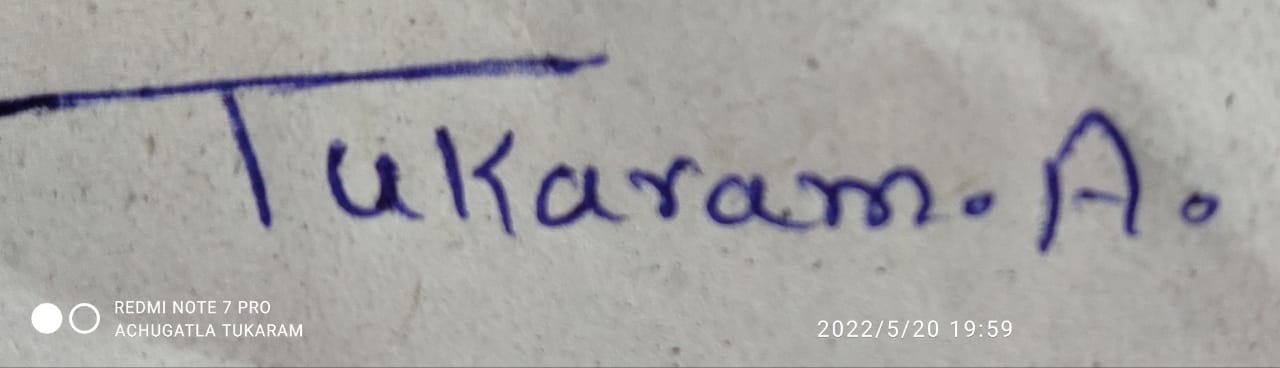 Tukaram. A.
REDMI NOTE 7 PRO
ACHUGATLA TUKARAM
2022/5/20 19:59